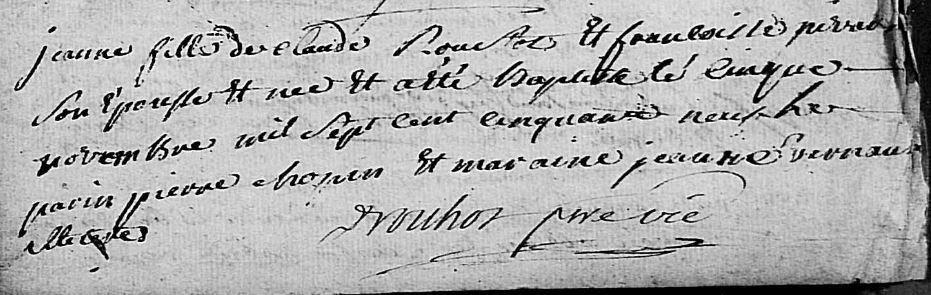 jeanne fille de claude Roustot Et francoisse pierre
son Epousse Et nee Et a été Baptisée le cinque
novembre mil sept cent cinquante neuf le
parin pierre chopin Et maraine jeanne vernau
illetres
Drouhot ptre vic